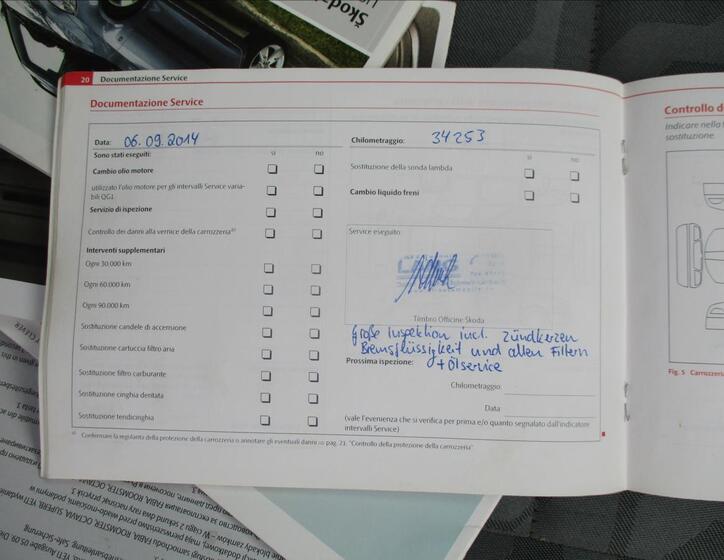 Škoda
20 Documentazione Service
Documentazione Service
Data: 06.09.2014
Sono stati eseguiti: sì no
Cambio olio motore
utilizzato l'olio motore per gli intervalli Service varia-
bili QG1
Servizio di ispezione
Controllo dei danni alla vernice della carrozzeria
Interventi supplementari
Ogni 30.000 km
Ogni 60.000 km
Ogni 90.000 km
Sostituzione candele di accensione
Sostituzione cartuccia filtro aria
Sostituzione filtro carburante
Sostituzione cinghia dentata
Sostituzione tendicinghia
Chilometraggio: 34253
sì no
Sostituzione della sonda lambda
Cambio liquido freni
Service eseguito:
Timbro Officine Škoda
große Inspektion incl. Zündkerzen
Bremsflüssigkeit und allen Filtern
+ Ölservice
Prossima ispezione:
Chilometraggio:
Data
(vale l'evenienza che si verifica per prima e/o quanto segnalato dall'indicatore
intervalli Service)
Confermare la regolarità della protezione della carrozzeria o annotare gli eventuali danni ⇒ pag. 21, "Controllo della protezione della carrozzeria"
Controllo d
Indicare nella
sostituzione.
Fig. 5 Carrozzeria